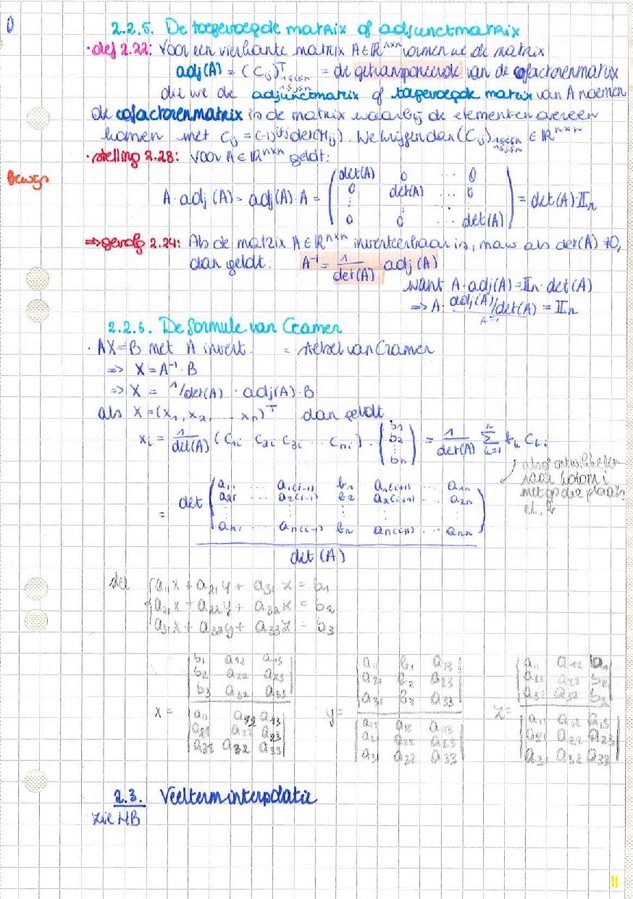 2.2.5. De toegevoegde matrix of adjunctmatrix
· def 2.22: Voor een vierkante matrix A∈ℝⁿˣⁿ vormen we de matrix
adj(A) = (C_ij)ᵀ 1≤i≤n 1≤j≤n = de getransponeerde van de cofactorenmatrix
die we de adjunctmatrix of toegevoegde matrix van A noemen
de cofactorenmatrix is de matrix waarbij de elementen overeen
komen met C_ij = (-1)^(i+j) det(M_ij). We krijgen dan (C_ij) 1≤i≤n 1≤j≤n ∈ ℝⁿˣⁿ
· stelling 2.23: Voor A∈ℝⁿˣⁿ geldt:
Bewijs
A·adj(A) = adj(A)·A = ( det(A) 0 ·· 0
0 det(A) ·· 0
0 0 ·· det(A) ) = det(A)·𝕀ₙ
⇒ gevolg 2.24: Als de matrix A∈ℝⁿˣⁿ inverteerbaar is, m.a.w. als det(A) ≠0,
dan geldt: A⁻¹ = 1/det(A) · adj(A)
want A·adj(A) = 𝕀ₙ · det(A)
⇒ A· adj(A)/det(A) = 𝕀ₙ
A⁻¹
2.2.6. De formule van Cramer
· AX=B met A invert. = stelsel van Cramer
⇒ X = A⁻¹·B
⇒ X = 1/det(A) · adj(A)·B
als X = (x₁, x₂, ... xₙ)ᵀ dan geldt
x_i = 1/det(A) (C₁ᵢ C₂ᵢ C₃ᵢ ··· Cₙᵢ) · ( b₁ b₂ ⋮ bₙ ) = 1/det(A) Σ_{k=1}^{n} b_k C_ki
= det ( a₁₁ ··· a₁(i-1) b₁ a₁(i+1) ··· a₁ₙ
a₂₁ ··· a₂(i-1) b₂ a₂(i+1) ··· a₂ₙ
⋮ ⋮ ⋮ ⋮ ⋮
aₙ₁ ··· aₙ(i-1) bₙ aₙ(i+1) ··· aₙₙ )
det(A)
naar kolom i
a₁₁x + a₁₂y + a₁₃z = b₁
a₂₁x + a₂₂y + a₂₃z = b₂
a₃₁x + a₃₂y + a₃₃z = b₃
b₁ a₁₂ a₁₃ a₁₁ b₁ a₁₃ a₁₁ a₁₂ b₁
b₂ a₂₂ a₂₃ a₂₁ b₂ a₂₃ a₂₁ a₂₂ b₂
b₃ a₃₂ a₃₃ a₃₁ b₃ a₃₃ a₃₁ a₃₂ b₃
x = y = z =
a₁₁ a₁₂ a₁₃ a₁₁ a₁₂ a₁₃ a₁₁ a₁₂ a₁₃
a₂₁ a₂₂ a₂₃ a₂₁ a₂₂ a₂₃ a₂₁ a₂₂ a₂₃
a₃₁ a₃₂ a₃₃ a₃₁ a₃₂ a₃₃ a₃₁ a₃₂ a₃₃
2.3. Veelterminterpolatie
zie HB
11